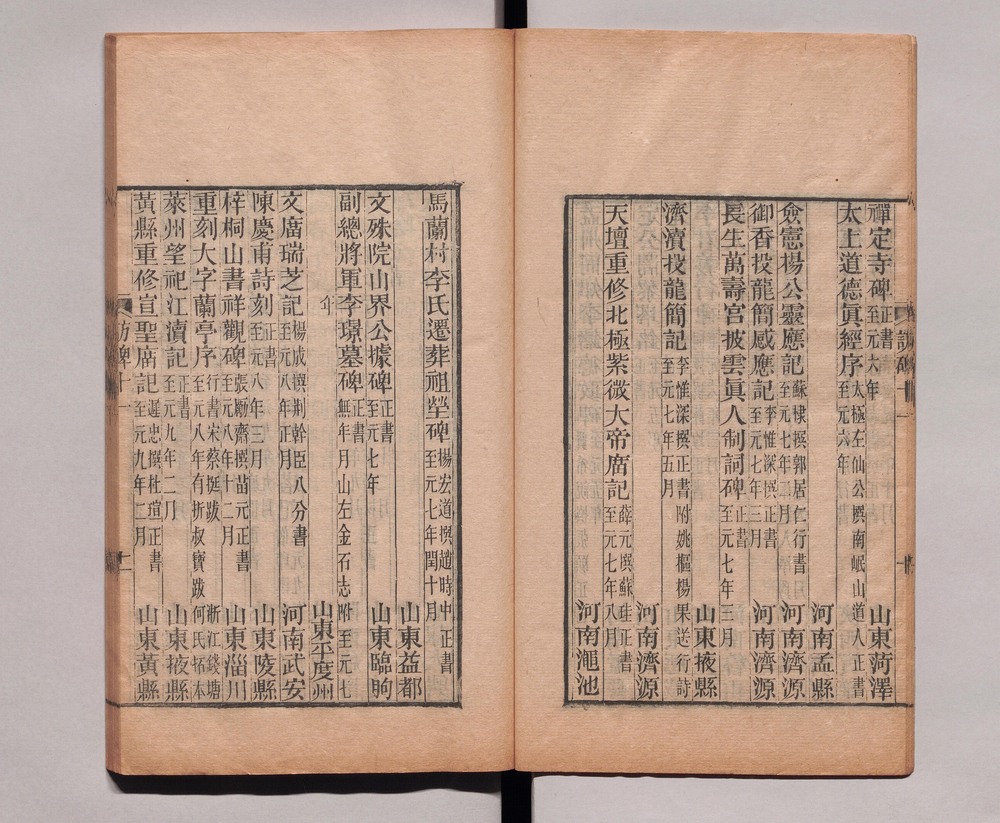 禪定寺碑 正書 至元六年 山東菏澤
太上道德眞經序 太極左仙公撰南岷山道人正書 至元六年
河南孟縣
僉憲楊公靈應記 蘇棣撰郭居仁行書 至元七年 月 河南濟源
御香投龍簡感應記 李惟深撰正書 至元七年三月 河南濟源
長生萬壽宫披雲眞人制詞碑 正書 至元七年三月
山東掖縣
濟瀆投龍簡記 李惟深撰正書附姚樞楊果送行詩 至元七年五月
河南濟源
天壇重修北極紫微大帝廟記 薛元撰蘇珪正書 至元七年八月 河南澠池
訪碑十一
馬蘭村李氏遷葬祖塋碑 楊宏道撰趙時中正書 至元七年閏十月
山東益都
文殊院山界公據碑 正書 至元七年 山東臨朐
副總將軍李璟墓碑 正書 無年月山左金石志附至元七
年 山東平度州
文廟瑞芝記 楊威撰荆幹臣八分書 至元八年正月 河南武安
陳慶甫詩刻 正書 至元八年三月 山東陵縣
梓桐山書祥觀碑 張勵齋撰苗元正書 至元八年十二月 山東淄川
重刻大字蘭亭序 行書宋蔡挺跋 至元八年有折叔寶跋 浙江錢塘 何氏拓本
萊州望祀江瀆記 正書 至元九年二月 山東掖縣
黃縣重修宣聖廟記 遲忠撰杜瑄正書 至元九年二月 山東黃縣
訪碑十一 二